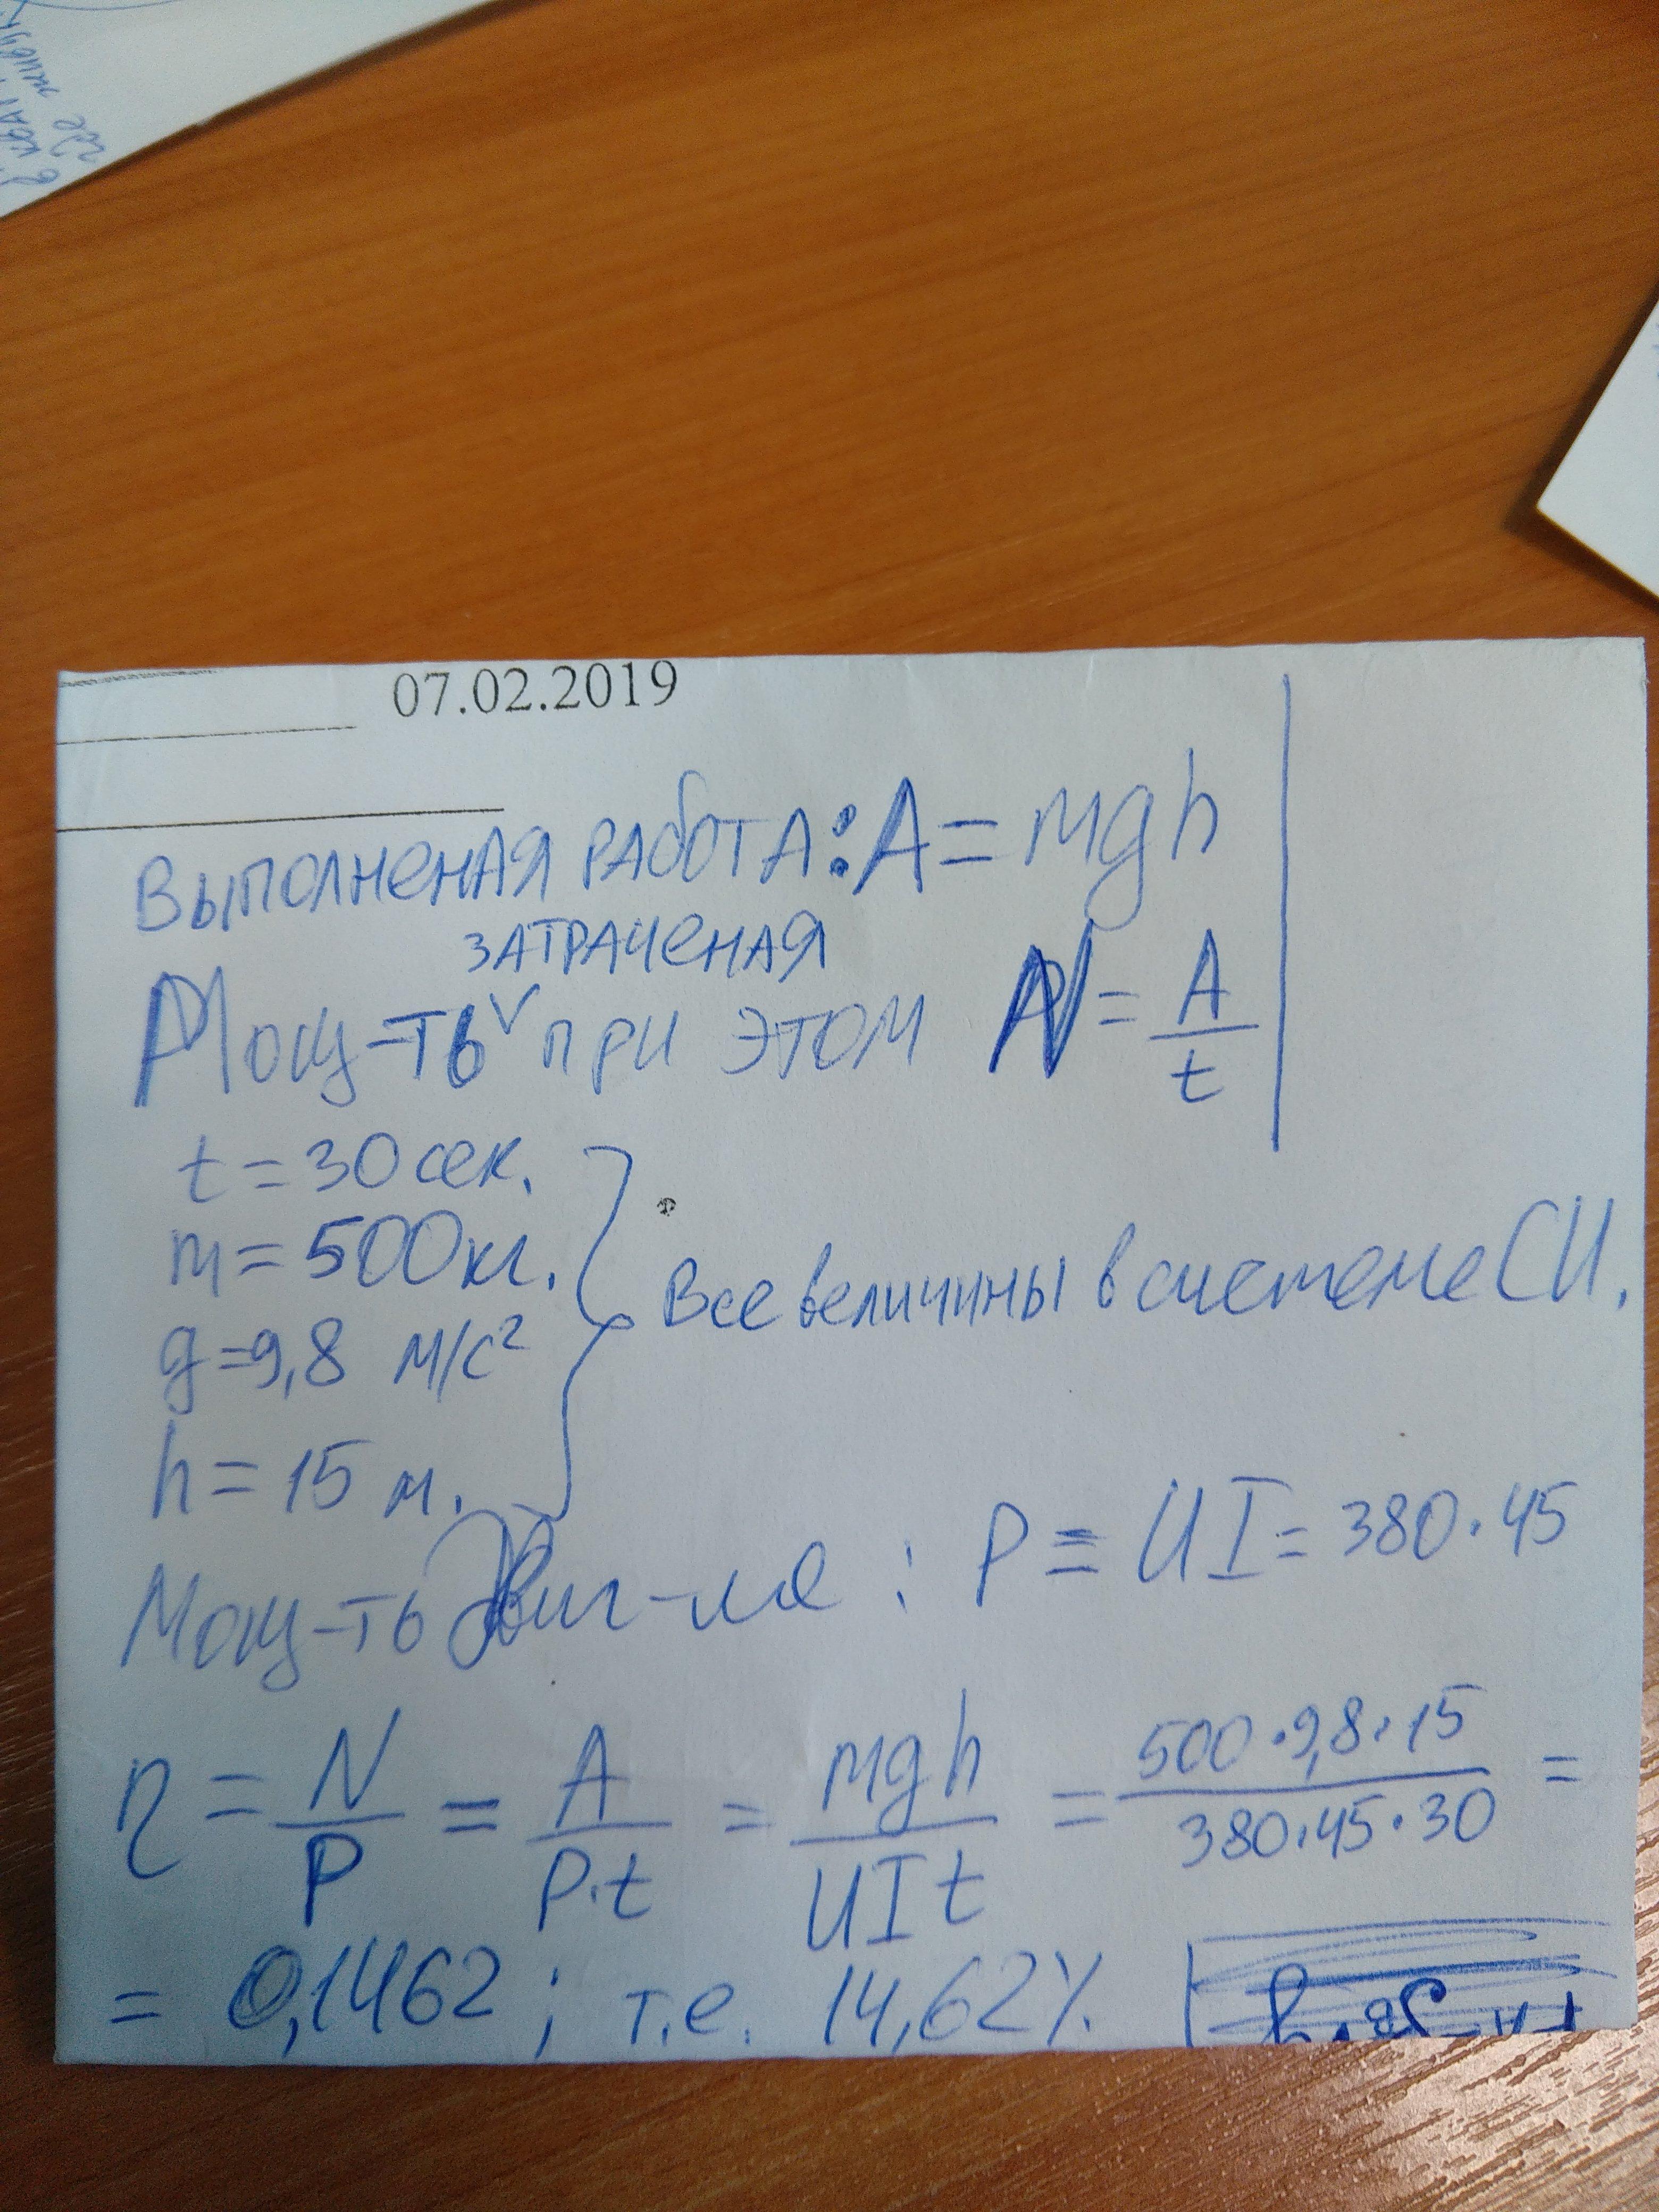 07.02.2019
Выполненая работа: A = mgh
затраченая
Мощ-ть при этом N = A/t
t = 30 сек.
m = 500 кг.
g = 9,8 м/с²
h = 15 м.
Все величины в системе СИ.
Мощ-ть двиг-ля : P = UI = 380·45
η = N/P = A/P·t = mgh/UIt = 500·9,8·15/380·45·30 =
= 0,1462 ; т.е. 14,62%.